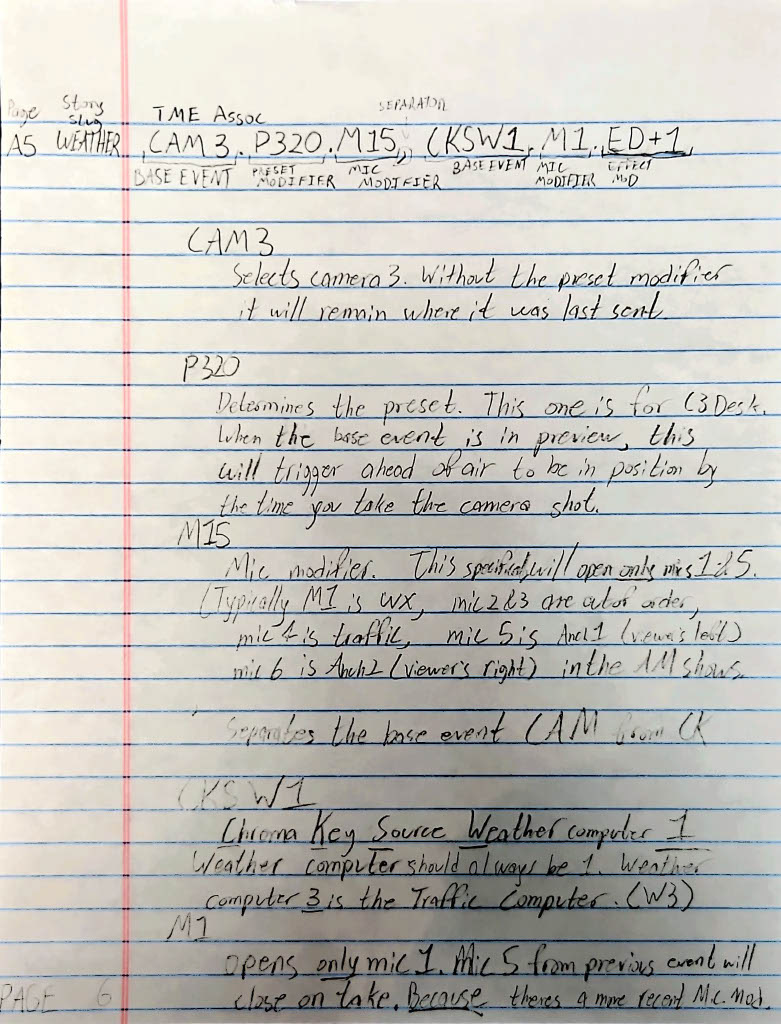 Page Story Slug TME Assoc SEPARATOR
A5 WEATHER ,CAM3.P320.M15,, CKSW1.M1.ED+1,
BASE EVENT PRESET MODIFIER MIC MODIFIER BASE EVENT MIC MODIFIER EFFECT MOD
CAM3
Selects camera 3. Without the preset modifier
it will remain where it was last sent.
P320
Determines the preset. This one is for C3 Desk.
When the base event is in preview, this
will trigger ahead of air to be in position by
the time you take the camera shot.
M15
Mic modifier. This will open only mics 1&5.
(Typically M1 is WX, mic 2&3 are out of order,
mic 4 is traffic, mic 5 is Anch1 (viewer's left)
mic 6 is Anch2 (viewer's right) in the AM shows.
,
Separates the base event CAM from CK
CKSW1
Chroma Key Source Weather computer 1
Weather computer should always be 1. Weather
computer 3 is the Traffic Computer. (W3)
M1
opens only mic 1. Mic 5 from previous event will
close on take. Because theres a more recent Mic Mod.
PAGE 6